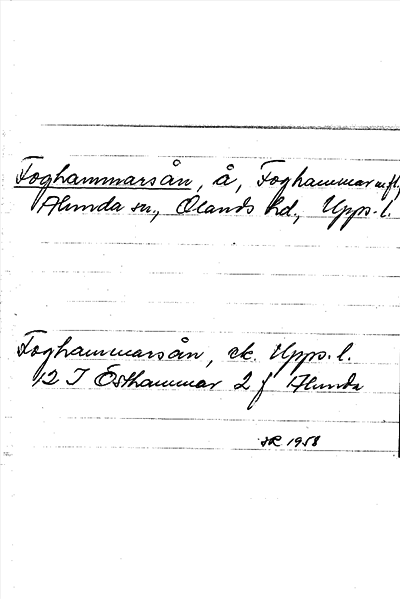 Foghammarsån, å, Foghammar m.fl.,
Alunda sn., Olands hd., Upps. l.
Foghammarsån, ek. Upps. l.
12 I Östhammar 2 f Alunda
1958